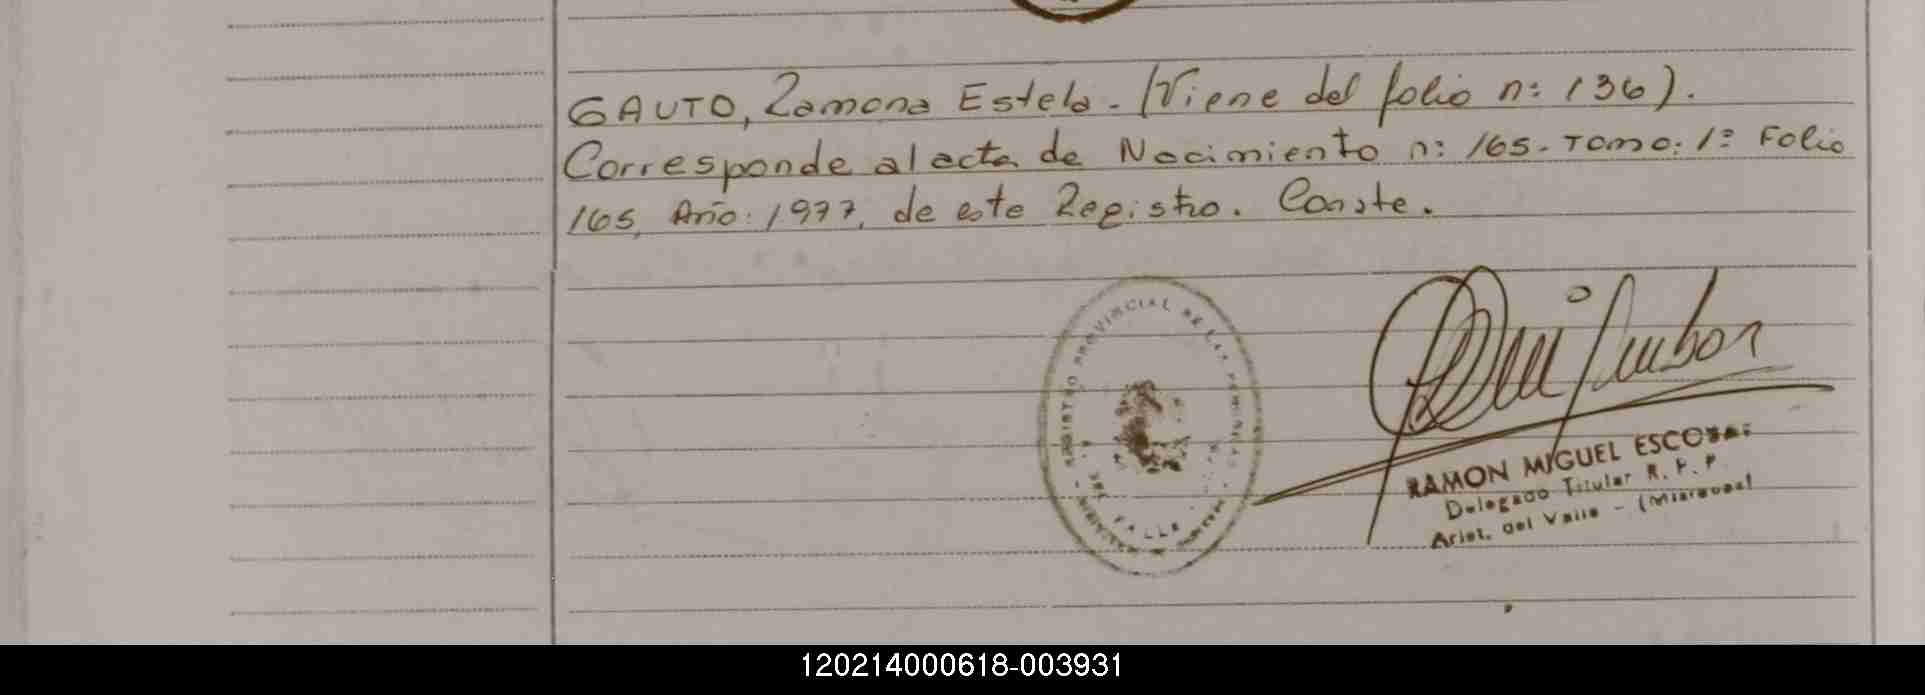 GAUTO, Ramona Estela. (Viene del folio n: 136).
Corresponde al acta de Nacimiento n: 165. Tomo: 1º Folio
165, Año: 1977, de este Registro. Conste.
REGISTRO PROVINCIAL DE LAS PERSONAS
DEL VALLE
RAMON MIGUEL ESCOBAR
Delegado Titular R. P. P.
Arist. del Valle - (Misiones)
120214000618-003931